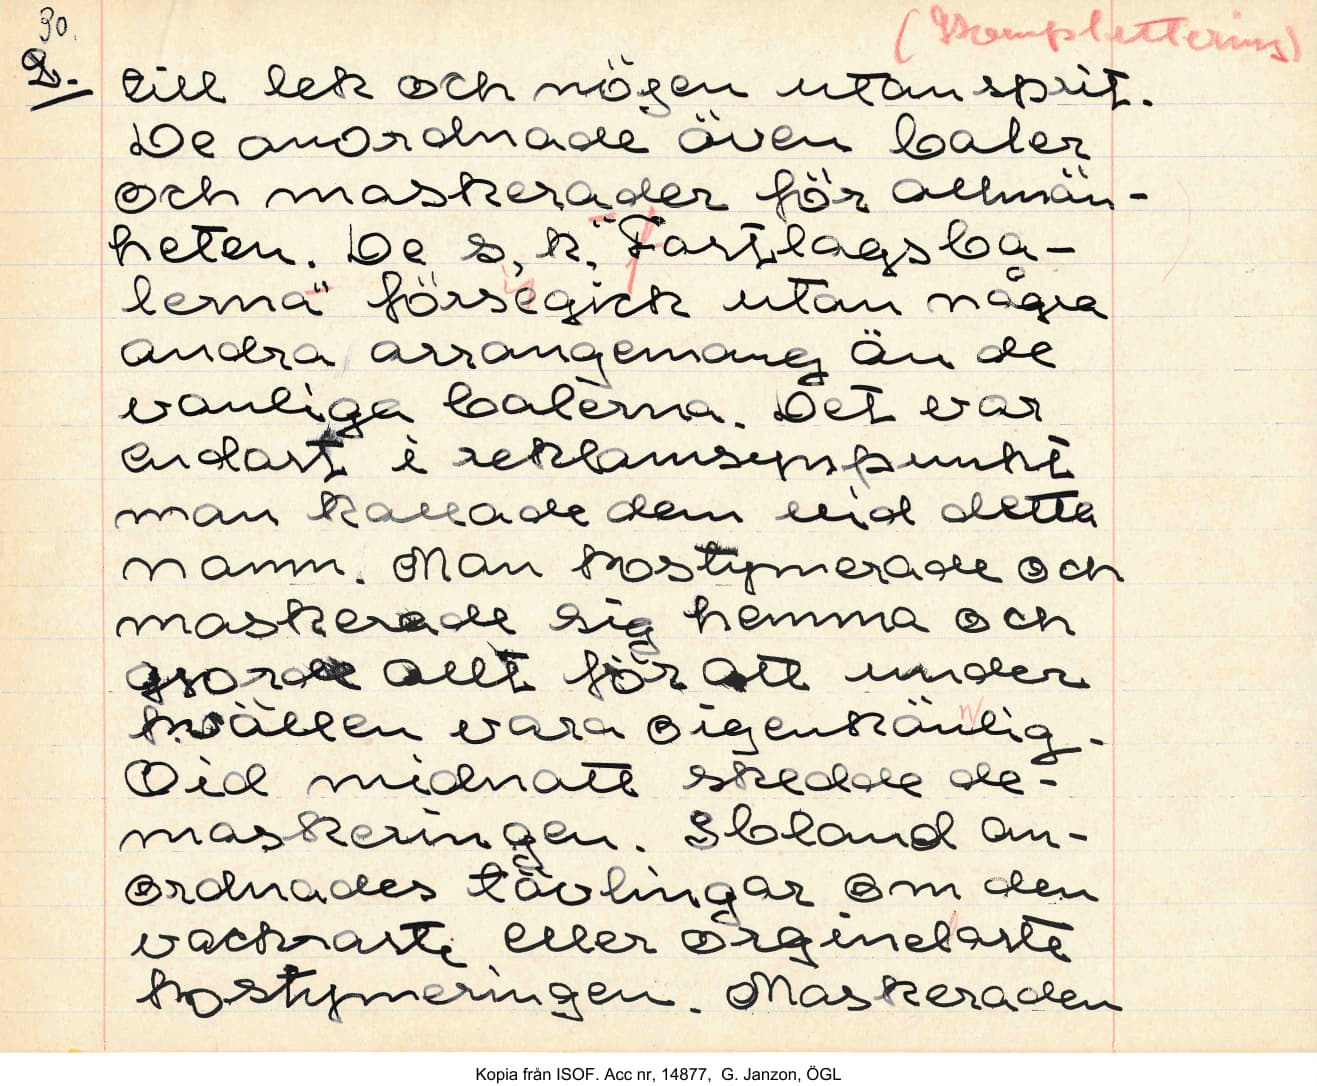 30.
(Komplettering)
2.
till lek och nögen utan sprit.
De anordnade även baler
och maskerader för allmän-
heten. De s,k, "Fastlagsba-
lerna" försiegick utan några
andra arrangemang än de
vanliga balerna. Det var
endast i reklamsynpunkt
man kallade dem vid detta
namn. Man kostymerade och
maskerade sig hemma och
gjorde allt för att under
kvällen vara oigenkänlig.
n
Vid midnatt skedde de-
maskeringen. Ibland an-
ordnades tävlingar om den
vackraste eller orginelaste
kostymeringen. Maskeraden
Kopia från ISOF. Acc nr, 14877, G. Janzon, ÖGL